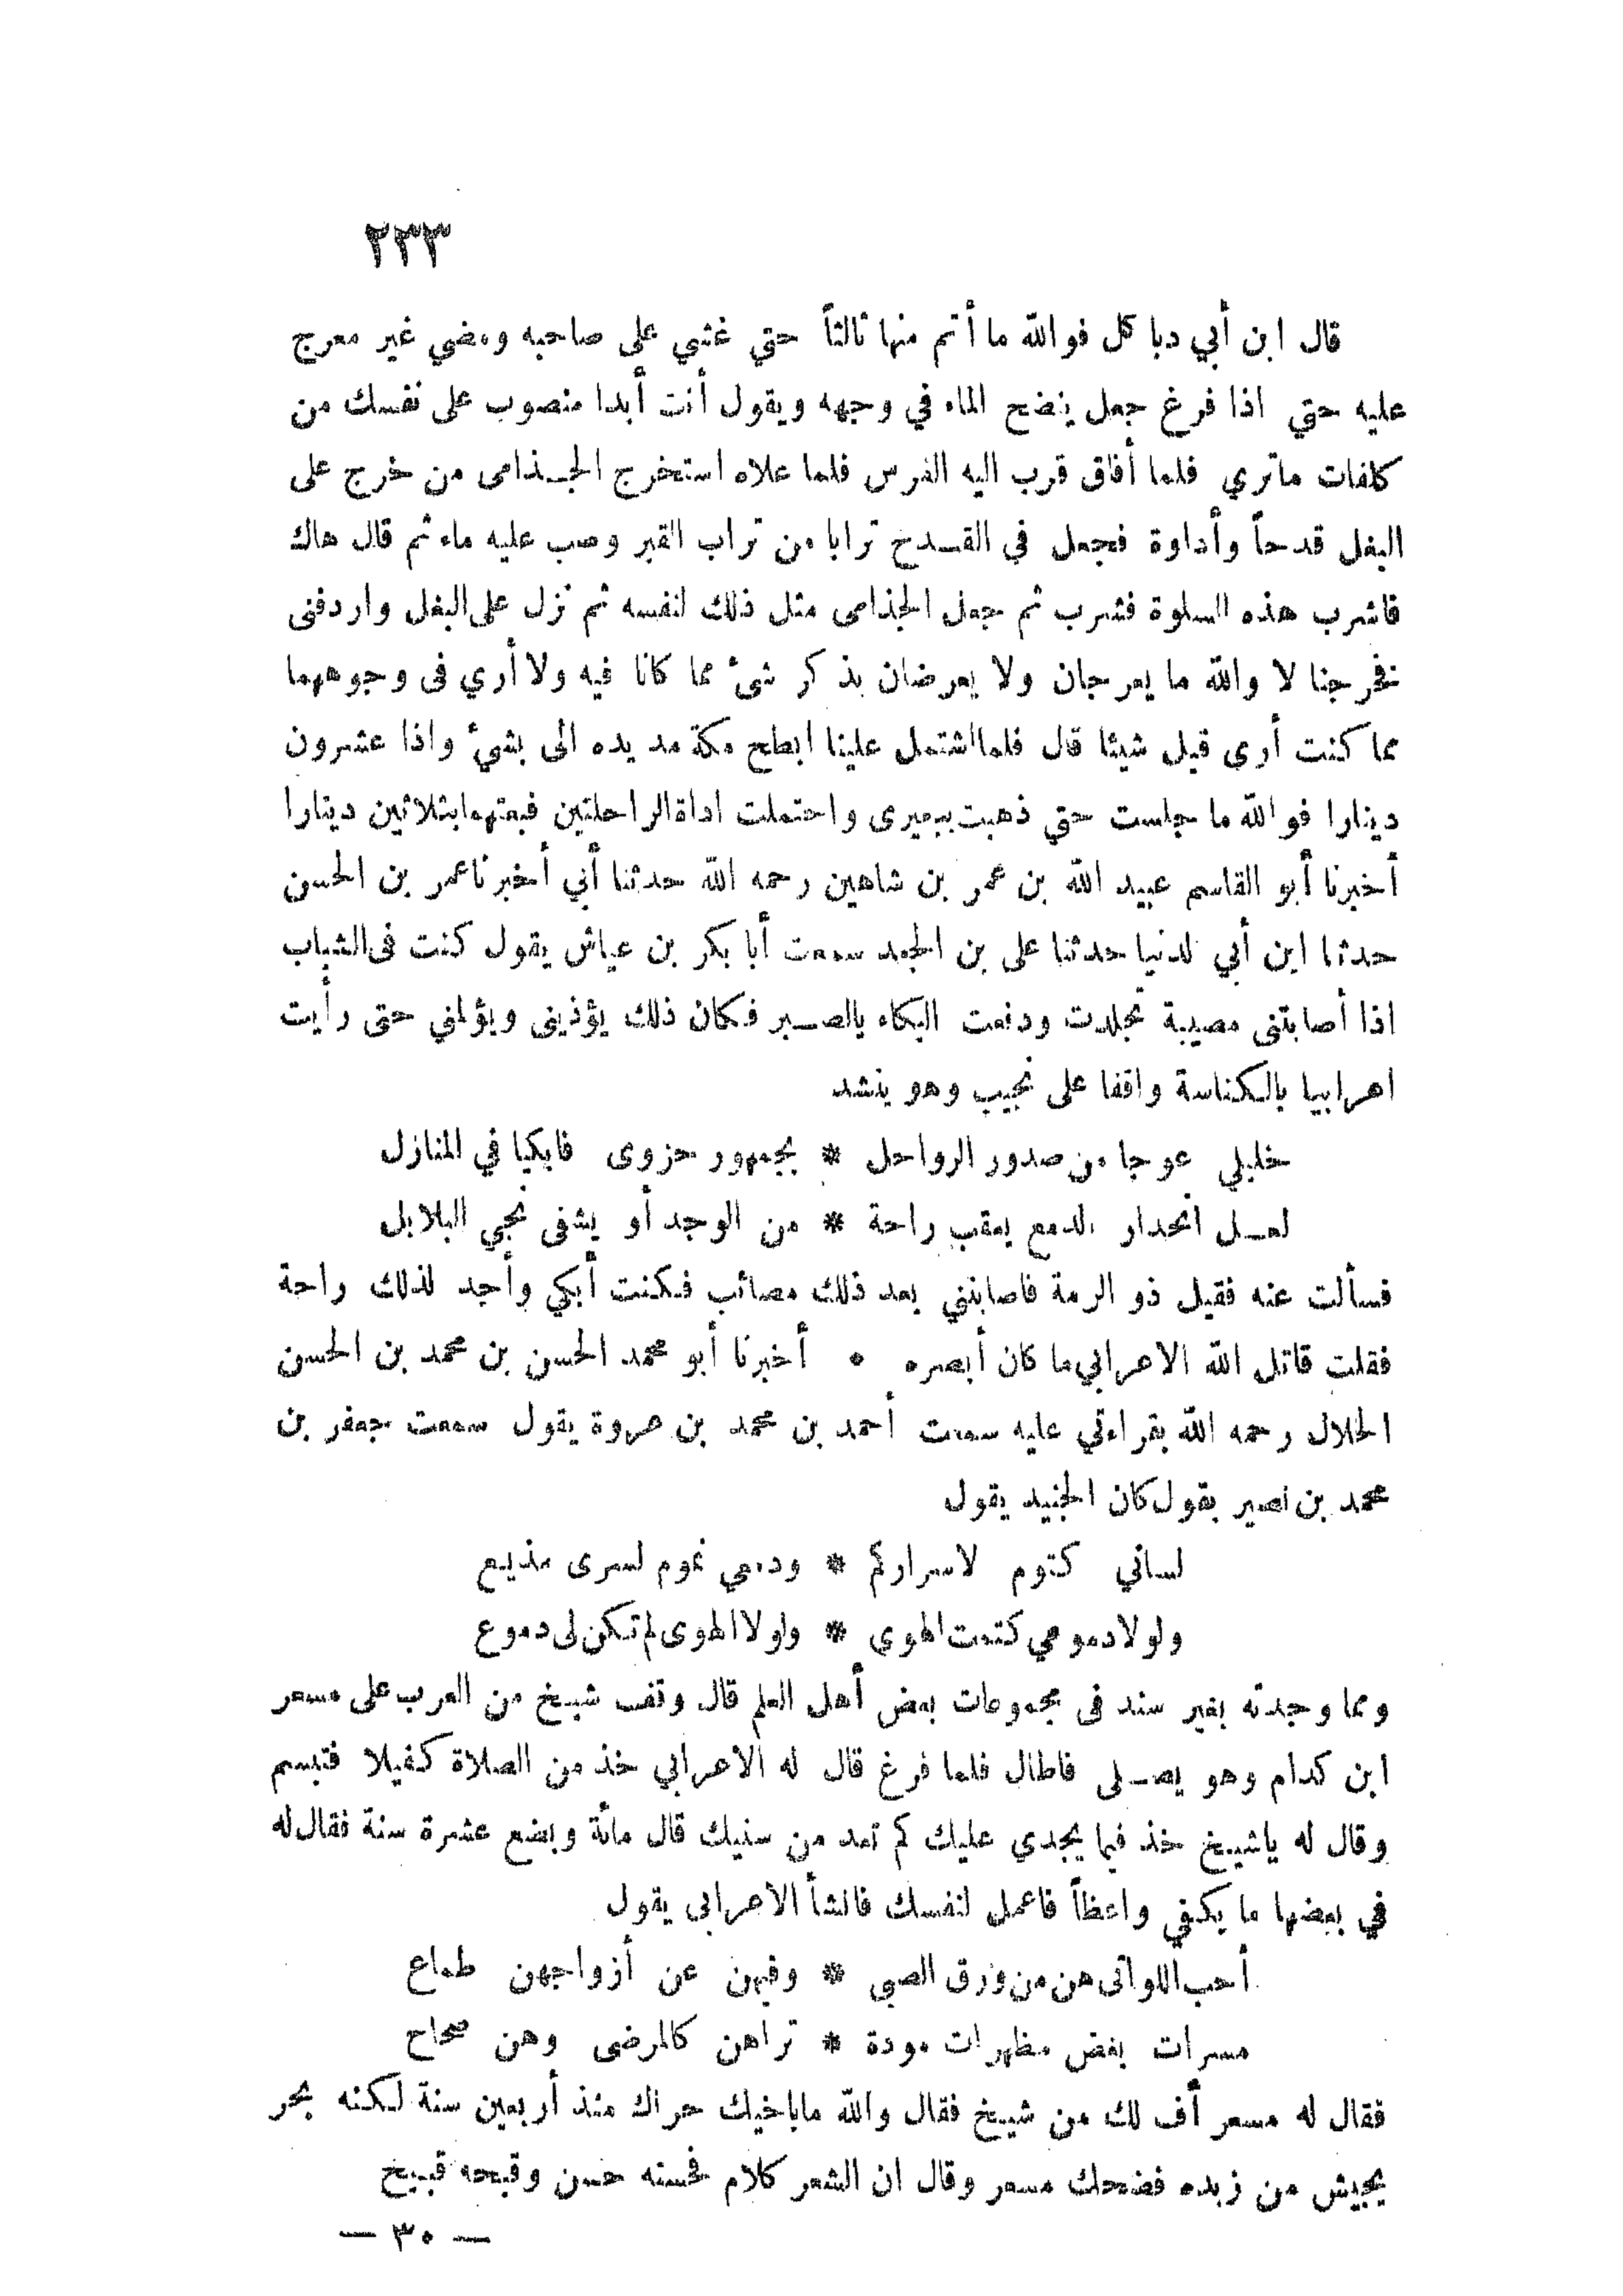 ٢٣٣
قال ابن أبي دبا كل فوالله ما أتم منها ثالثاً حتي غشي على صاحبه ومضي غير معرج
عليه حتي اذا فرغ جعل ينضح الماء في وجهه ويقول أنت أبدا منصوب على نفسك من
كلفات ماتري فلما أفاق قرب اليه الفرس فلما علاه استخرج الجذامى من خرج على
البغل قدحاً وأداوة فجعل في القدح ترابا من تراب القبر وصب عليه ماء ثم قال هاك
فاشرب هذه السلوة فشرب ثم جعل الجذامى مثل ذلك لنفسه ثم نزل على البغل واردفنى
نفخرجنا لا والله ما يعرجان ولا يعرضان بذكر شئ مما كانا فيه ولا أري فى وجوههما
مما كنت أرى قبل شيئا قال فلما اشتمل علينا ابطح مكة مد يده الى بشئ واذا عشرون
دينارا فوالله ما جلست حتي ذهبت ببعيرى واحتملت اداة الراحلتين فبعتهما بثلاثين دينارا
أخبرنا أبو القاسم عبيد الله بن عمر بن شاهين رحمه الله حدثنا أبي أخبرنا عمر بن الحسن
حدثنا ابن أبي لدنيا حدثنا على بن الجعد سمعت أبا بكر بن عياش يقول كنت فى الشباب
اذا أصابتنى مصيبة تجلدت ودفعت البكاء بالصبر فكان ذلك يؤذينى ويؤلمني حتى رأيت
اعرابيا بالكناسة واقفا على نجيب وهو ينشد
خليلي عوجا من صدور الرواحل * بجمهور حزوى فابكيا في المنازل
لعل انحدار الدمع يعقب راحة * من الوجد أو يشفى نجي البلابل
فسألت عنه فقيل ذو الرمة فاصابتني بعد ذلك مصائب فكنت أبكي وأجد لذلك راحة
فقلت قاتل الله الاعرابي ما كان أبصره • أخبرنا أبو محمد الحسن بن محمد بن الحسن
الخلال رحمه الله بقراءتي عليه سمعت أحمد بن محمد بن عروة يقول سمعت جعفر بن
محمد بن نصير يقول كان الجنيد يقول
لساني كتوم لاسراركم * ودمعي نموم لسرى مذيع
ولولا دموعي كتمت الهوي * ولولا الهوى لم تكن لى دموع
ومما وجدته بغير سند فى مجموعات بعض أهل العلم قال وقف شيخ من العرب على مسعر
ابن كدام وهو يصلى فاطال فلما فرغ قال له الاعرابي خذ من الصلاة كفيلا فتبسم
وقال له ياشيخ خذ فيما يجدي عليك كم تعد من سنيك قال مائة وبضع عشرة سنة فقال له
في بعضها ما يكفي واعظاً فاعمل لنفسك فانشأ الاعرابى يقول
أحب اللواتى هن من ورق الصبي * وفيهن عن أزواجهن طماح
مسرات بغض مظهرات مودة * تراهن كالمرضى وهن صحاح
فقال له مسعر أف لك من شيخ فقال والله ماباخيك حراك منذ أربعين سنة لكنه بحر
يجيش من زبده فضحك مسعر وقال ان الشعر كلام فحسنه حسن وقبحه قبيح
— ٣٠ —